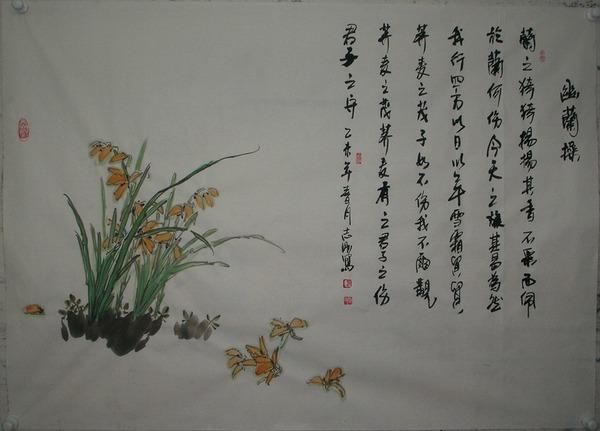 幽蘭操
蘭之猗猗揚揚其香不采而佩
於蘭何伤今天之旋其曷為然
我行四方以日以年雪霜貿貿
薺麦之茂子如不伤我不爾覯
薺麦之茂薺麦有之君子之伤
君子之守 乙未年春月志